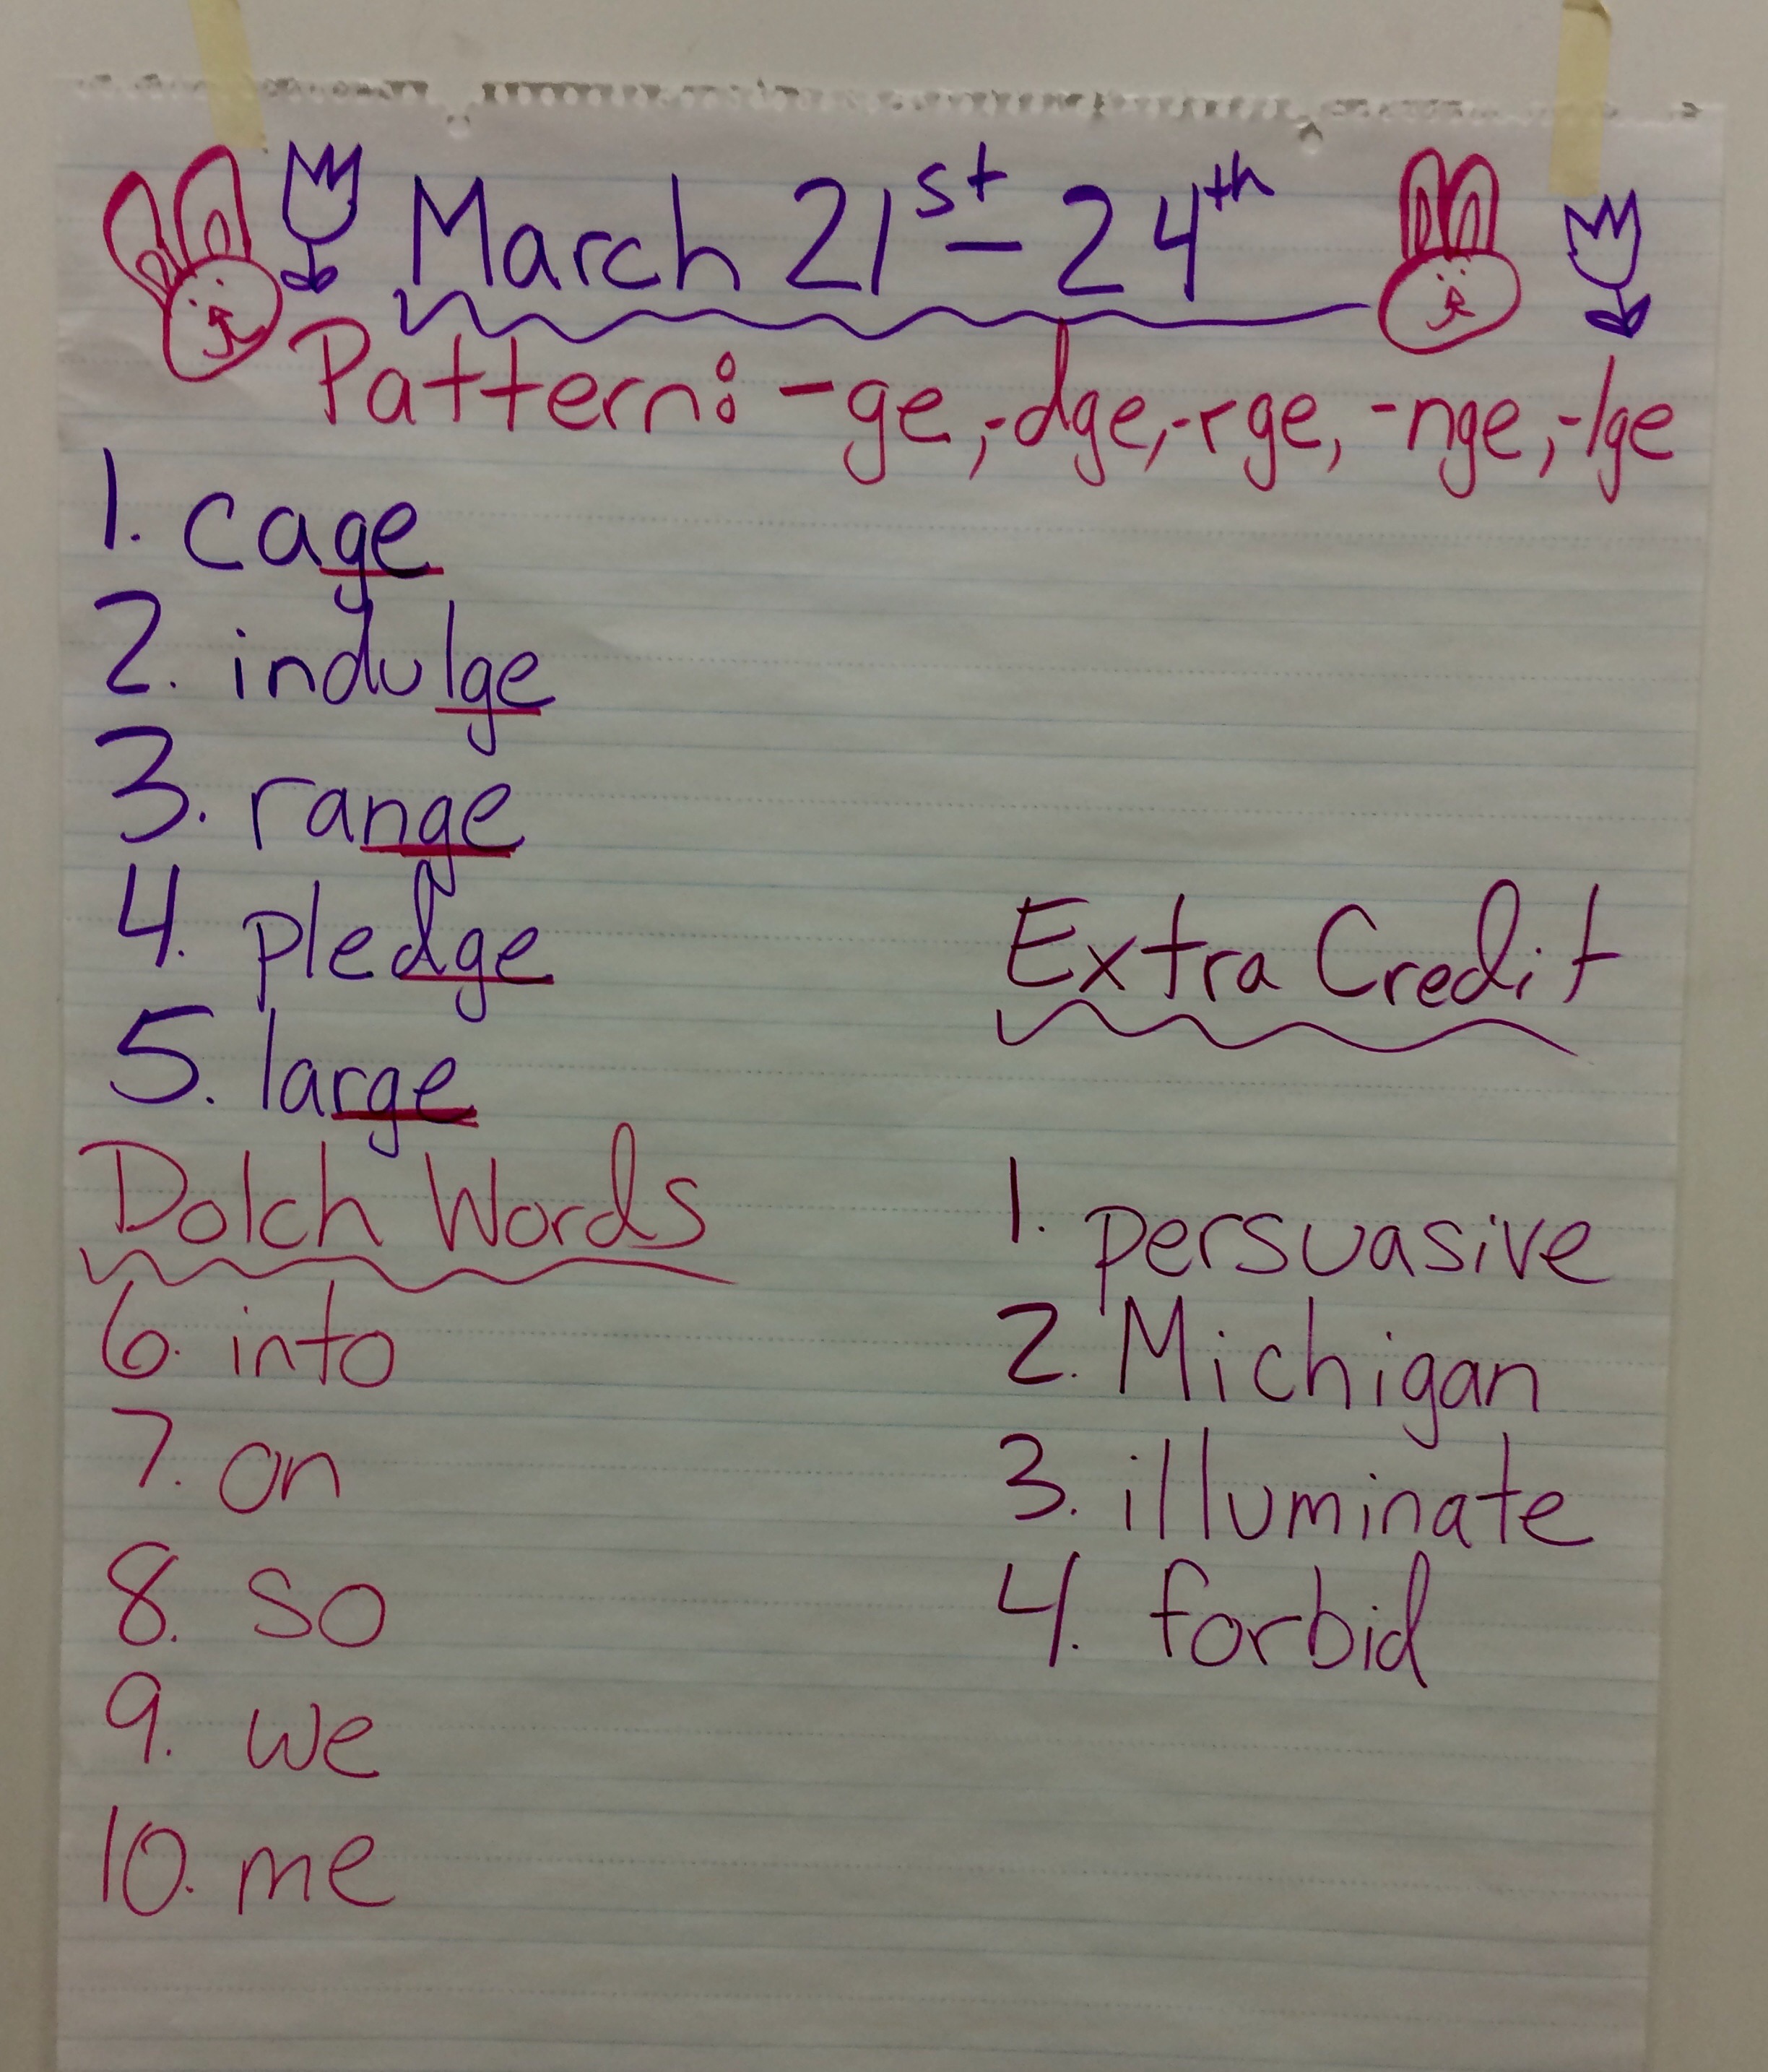 March 21st - 24th
Pattern: -ge, -dge, -rge, -nge, -lge
1. cage
2. indulge
3. range
4. pledge
5. large
Dolch Words
6. into
7. on
8. so
9. we
10. me
Extra Credit
1. persuasive
2. Michigan
3. illuminate
4. forbid